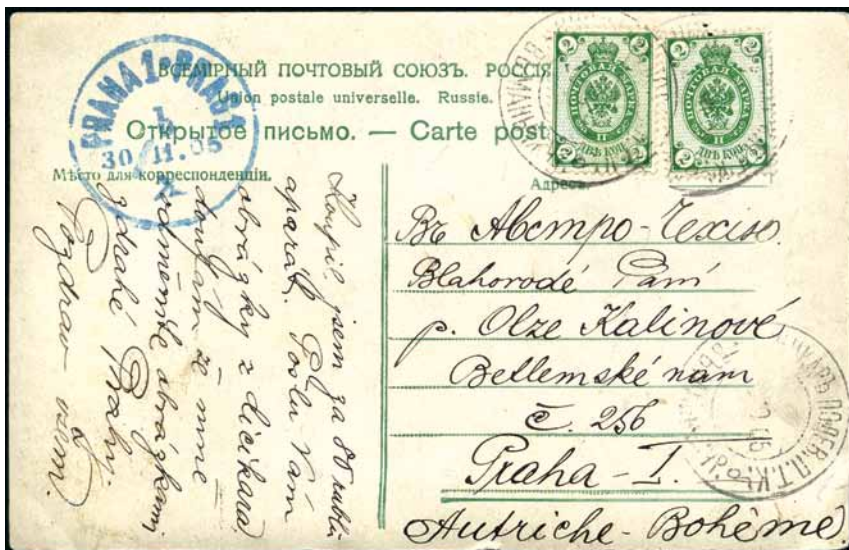 ВСЕМІРНЫЙ ПОЧТОВЫЙ СОЮЗЪ. РОССІЯ
Union postale universelle. Russie.
Открытое письмо. — Carte post
Мѣсто для корреспонденціи.
Адресъ
PRAHA 1 * PRAG 1
30/11.05
2 2
ПОЧТОВАЯ МАРКА
ДВѢ КОП.
2 2
2 2
ПОЧТОВАЯ МАРКА
ДВѢ КОП.
2 2
Koupil jsem za 80 rublů
aparát. Pošlu Vám
obrázky z Cicikara
doufám že mne
odměníte obrázkami
z drahé Prahy.
Pozdrav všem.
Въ Австро-Чехію.
Blahorodé Paní
p. Olze Kalinové
Betlemské nám
č. 256
Praha - I.
Autriche-Bohême.